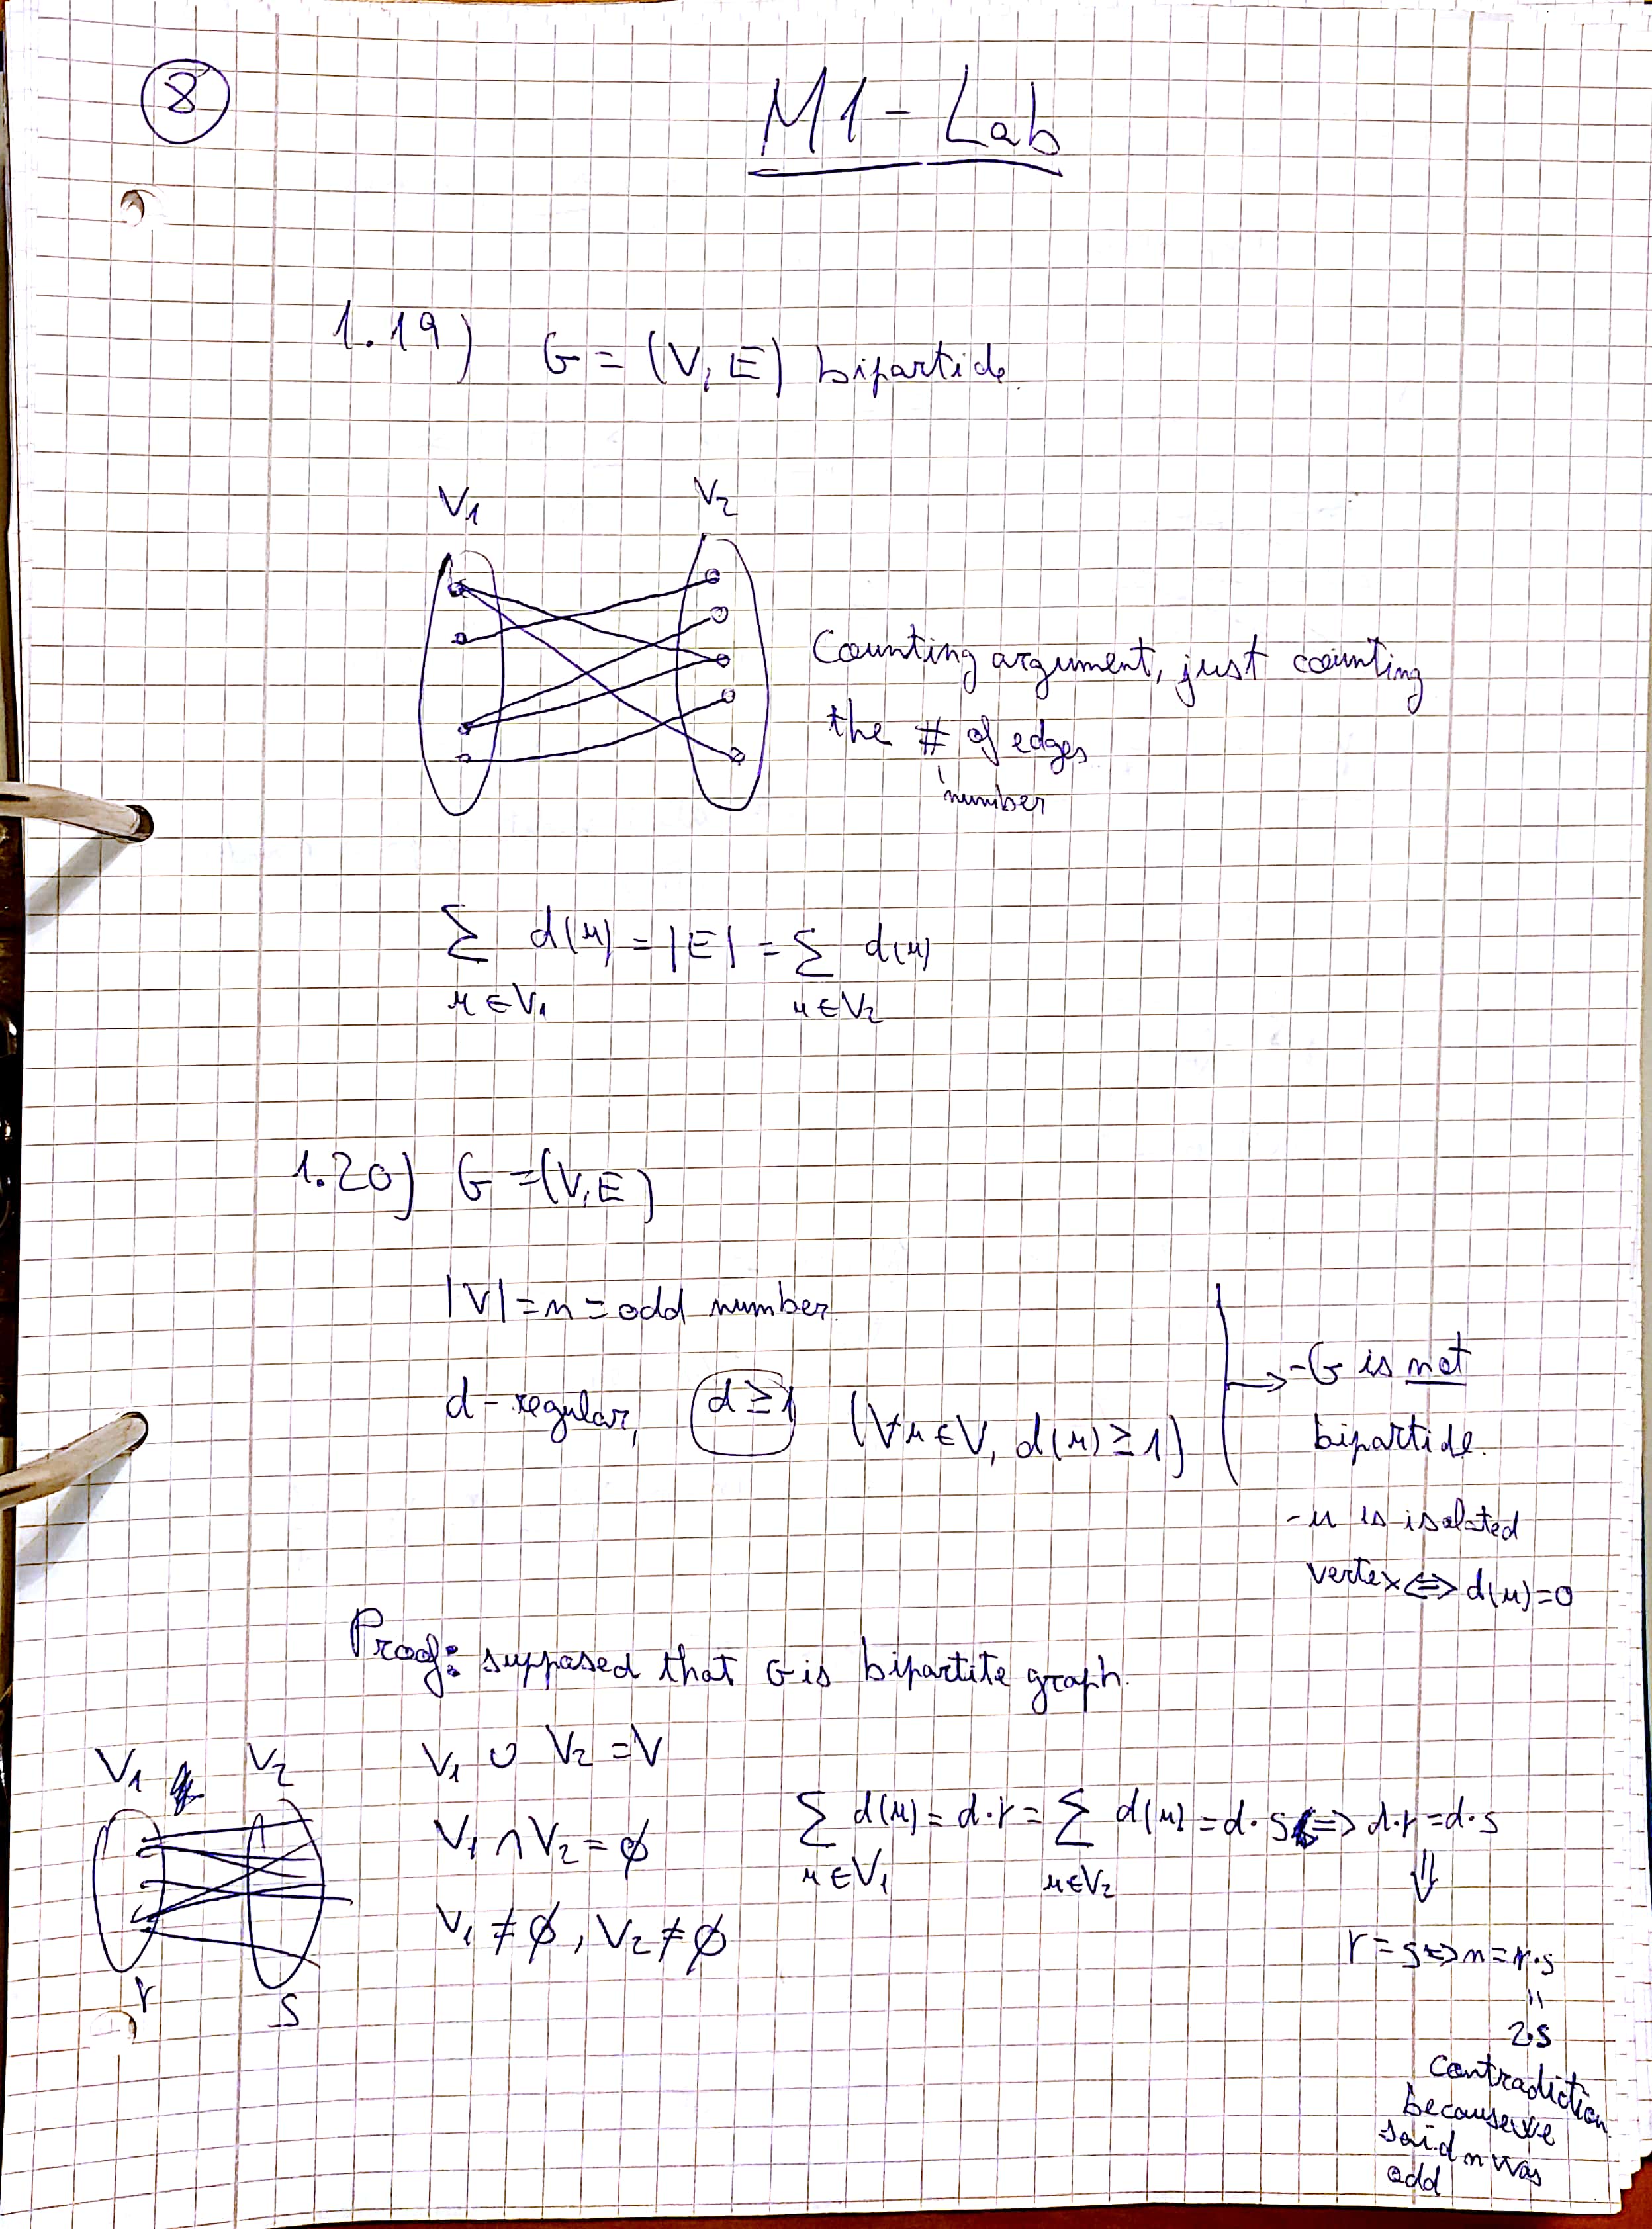 8
M1 - Lab
1.19) G = (V, E) bipartide.
V₁ V₂
Counting argument, just counting
the # of edges
number
∑ d(u) = |E| = ∑ d(u)
u ∈ V₁ u ∈ V₂
1.20) G = (V, E)
|V| = n = odd number.
d - regular, d ≥ 1 (∀u ∈ V, d(u) ≥ 1)
- G is not
bipartide.
- u is isolated
vertex ⇔ d(u) = 0
Proof: supposed that G is bipartite graph.
V₁ V₂
r s
V₁ ∪ V₂ = V
V₁ ∩ V₂ = ∅
V₁ ≠ ∅, V₂ ≠ ∅
∑ d(u) = d·r = ∑ d(u) = d·s ⇔ d·r = d·s
u ∈ V₁ u ∈ V₂
⇓
r = s ⇔ n = r·s
"
2·s
contradiction
because we
said n was
odd